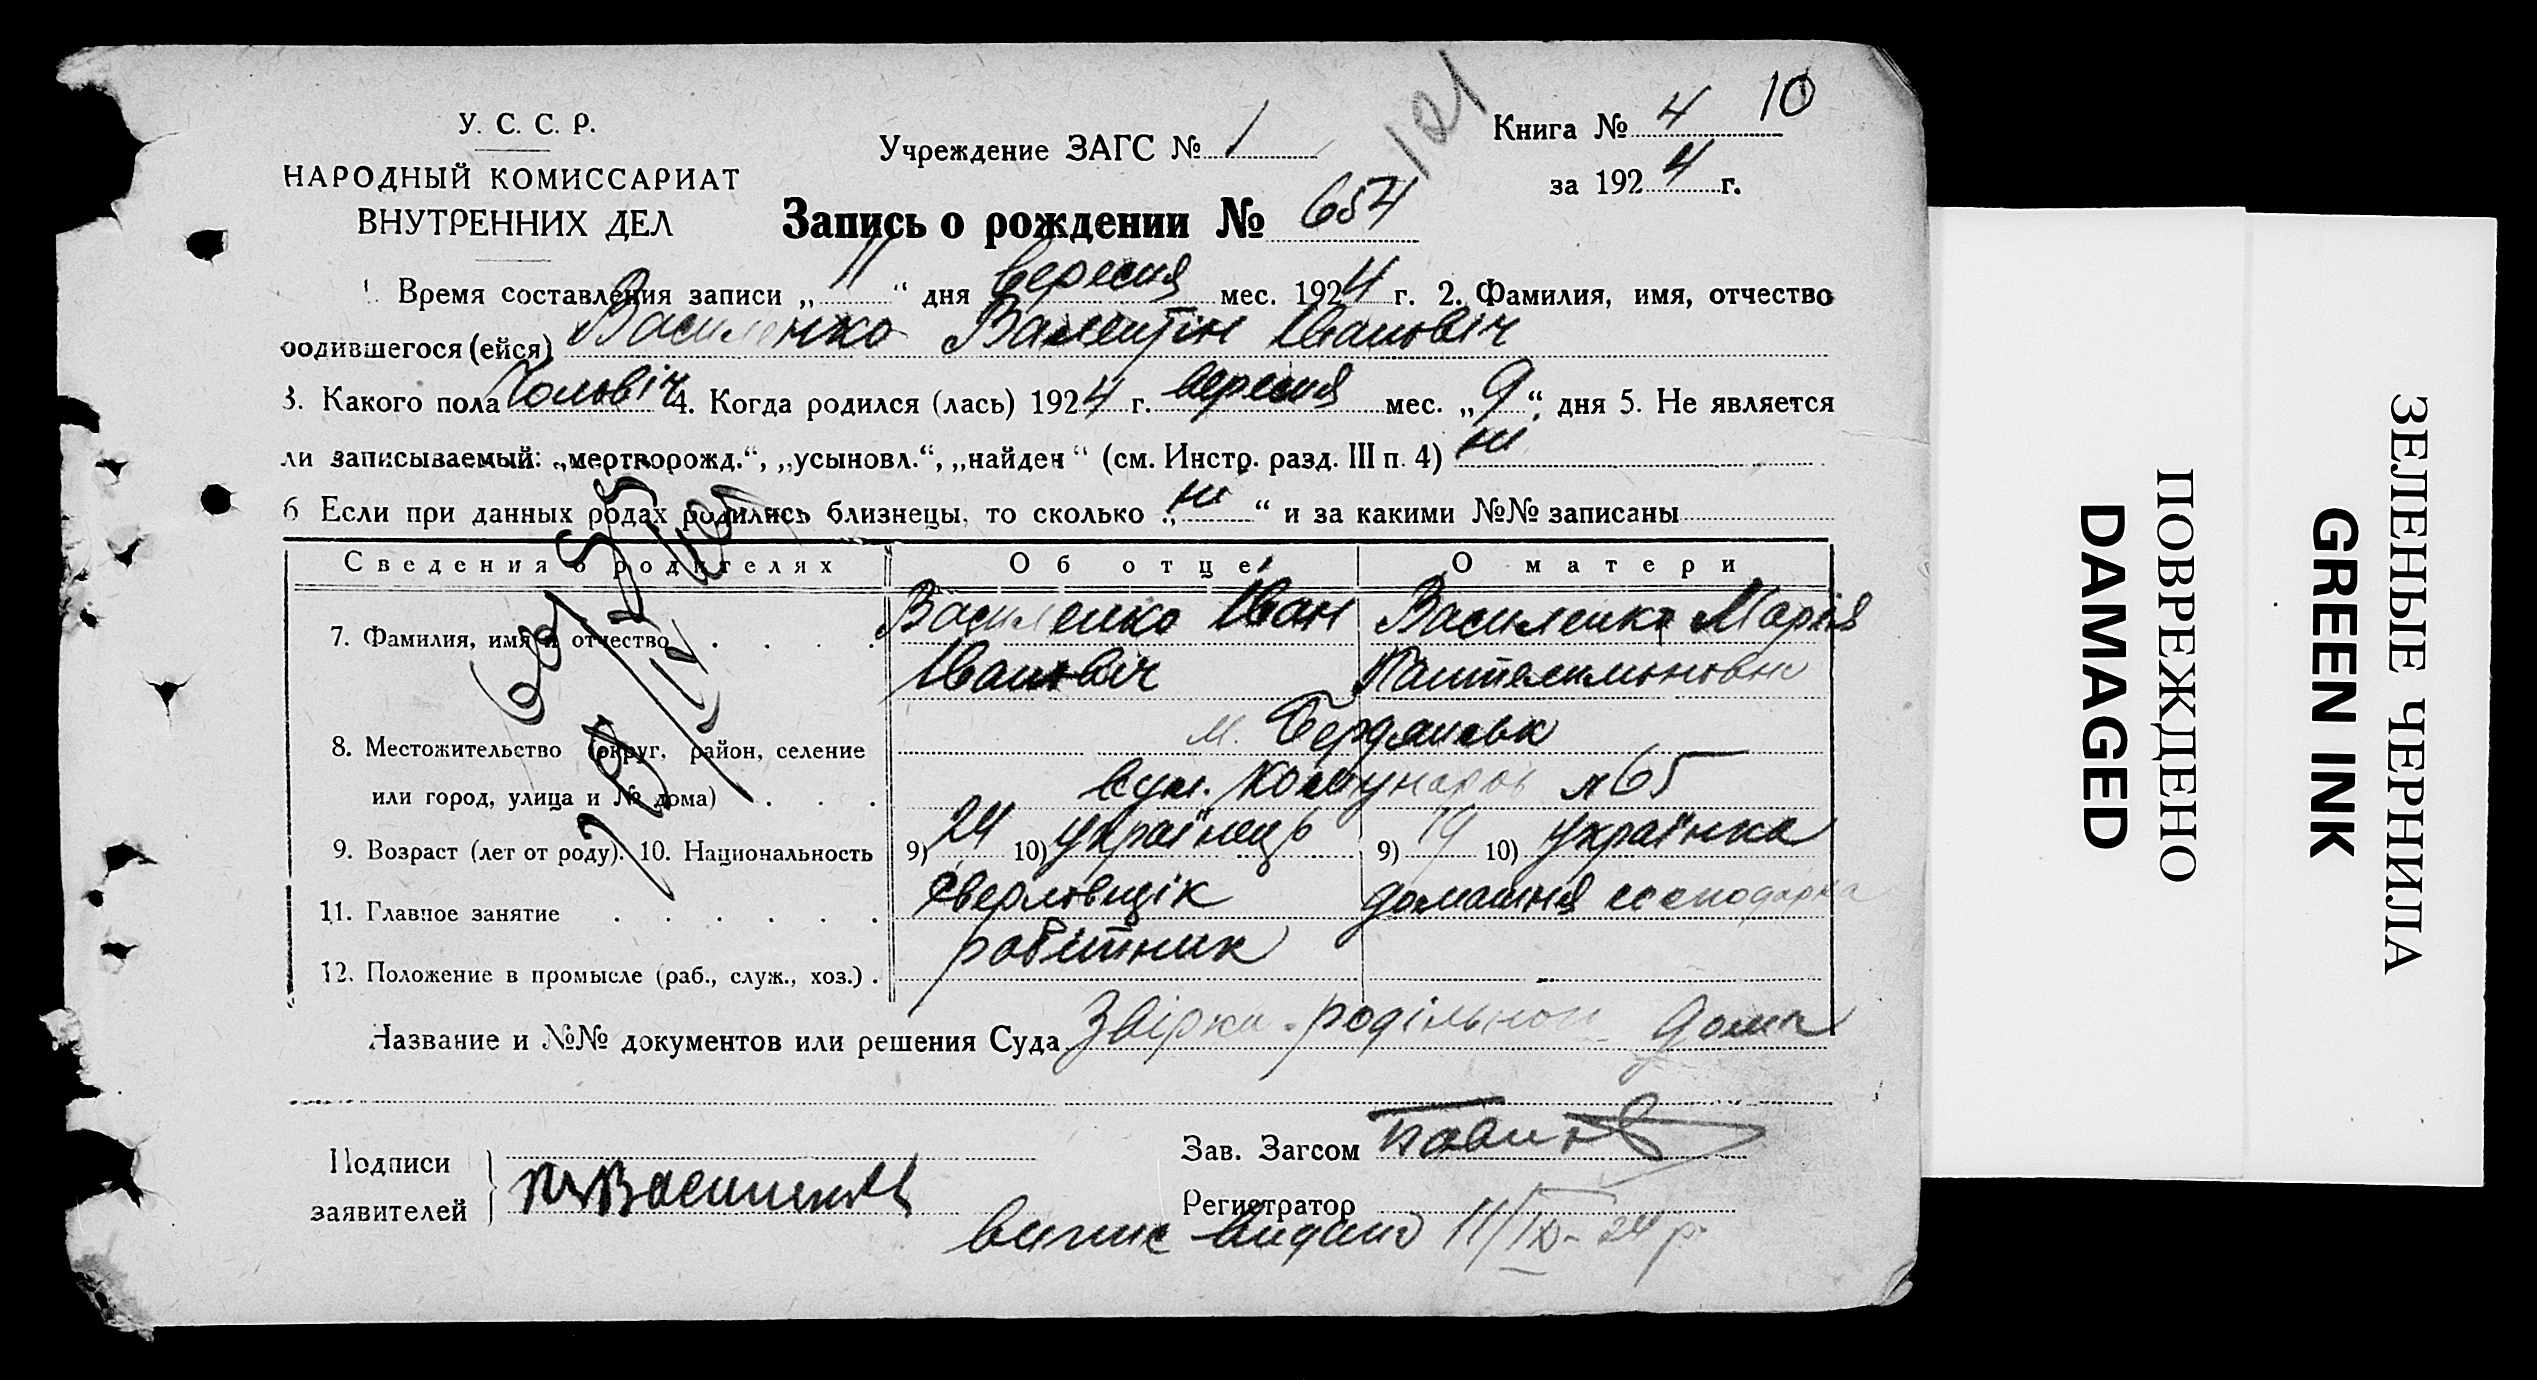 10
121
У. С. С. Р.
НАРОДНЫЙ КОМИССАРИАТ
ВНУТРЕННИХ ДЕЛ
Учреждение ЗАГС № 1
Книга № 4
за 1924 г.
Запись о рождении № 654
1. Время составления записи „ 11 “ дня вересня мес. 1924 г. 2. Фамилия, имя, отчество
родившегося (ейся) Василенко Валентін Іванович
3. Какого пола Чоловіч 4. Когда родился (лась) 1924 г. вересня мес. „ 9 “ дня 5. Не является
ли записываемый: „мертворожд.“, „усыновл.“, „найден“ (см. Инстр. разд. III п. 4) ні
6 Если при данных родах родились близнецы, то сколько „ ні “ и за какими №№ записаны
Сведения о родителях Об отце О матери
7. Фамилия, имя и отчество Василенко Іван Василенко Марія
Івановіч Пантелимоновна
8. Местожительство (округ, район, селение м. Бердянськ
или город, улица и № дома) вул. Комунаров № 65
9. Возраст (лет от роду). 10. Национальность 9) 24 10) українець 9) 19 10) українка
11. Главное занятие сверловщік домашня господарка
12. Положение в промысле (раб., служ., хоз.) робітник
Название и №№ документов или решения Суда Звірка родільного дома
Подписи
заявителей
Зав. Загсом
Регистратор
випис видано 11/IX-24 р.
ПОВРЕЖДЕНО
DAMAGED
ЗЕЛЕНЫЕ ЧЕРНИЛА
GREEN INK